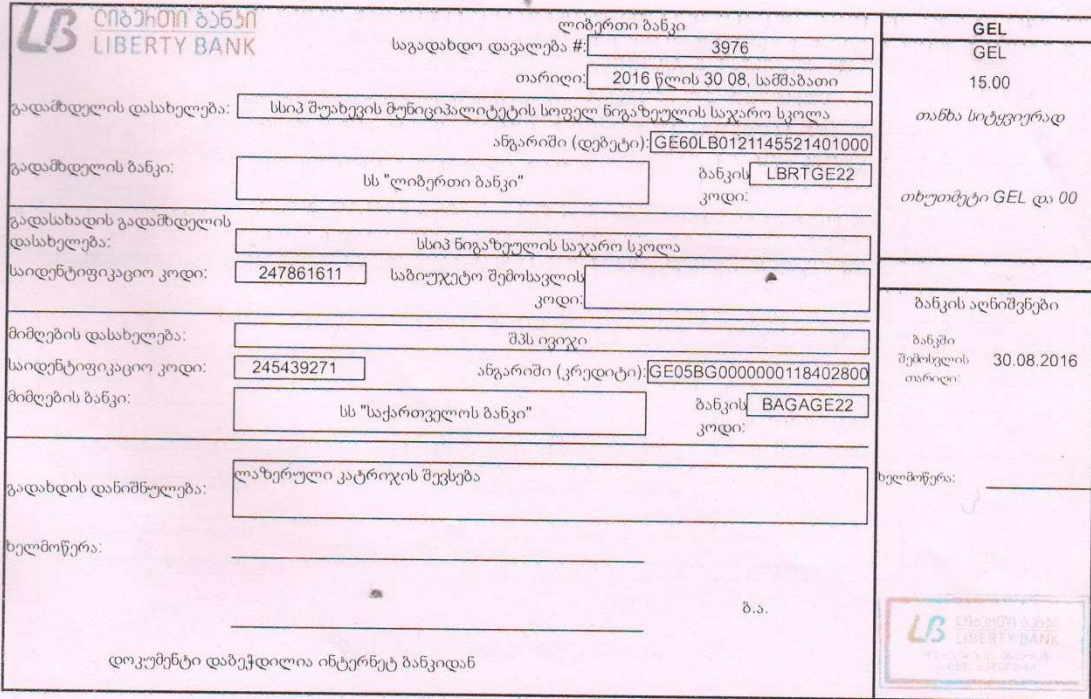 ლიბერთი ბანკი
LIBERTY BANK
ლიბერთი ბანკი
საგადახდო დავალება #: 3976
თარიღი: 2016 წლის 30 08, სამშაბათი
გადამხდელის დასახელება: სსიპ შუახევის მუნიციპალიტეტის სოფელ ნიგაზეულის საჯარო სკოლა
ანგარიში (დებეტი): GE60LB0121145521401000
გადამხდელის ბანკი: სს "ლიბერთი ბანკი" ბანკის კოდი: LBRTGE22
გადასახადის გადამხდელის
დასახელება: სსიპ ნიგაზეულის საჯარო სკოლა
საიდენტიფიკაციო კოდი: 247861611 საბიუჯეტო შემოსავლის
კოდი:
მიმღების დასახელება: შპს ივიჯი
საიდენტიფიკაციო კოდი: 245439271 ანგარიში (კრედიტი): GE05BG0000000118402800
მიმღების ბანკი: სს "საქართველოს ბანკი" ბანკის კოდი: BAGAGE22
გადახდის დანიშნულება: ლაზერული კატრიჯის შევსება
ხელმოწერა:
ბ.ა.
დოკუმენტი დაბეჭდილია ინტერნეტ ბანკიდან
GEL
GEL
15.00
თანხა სიტყვიერად
თხუთმეტი GEL და 00
ბანკის აღნიშვნები
ბანკში
შემოსვლის 30.08.2016
თარიღი:
ხელმოწერა:
ლიბერთი ბანკი
LIBERTY BANK